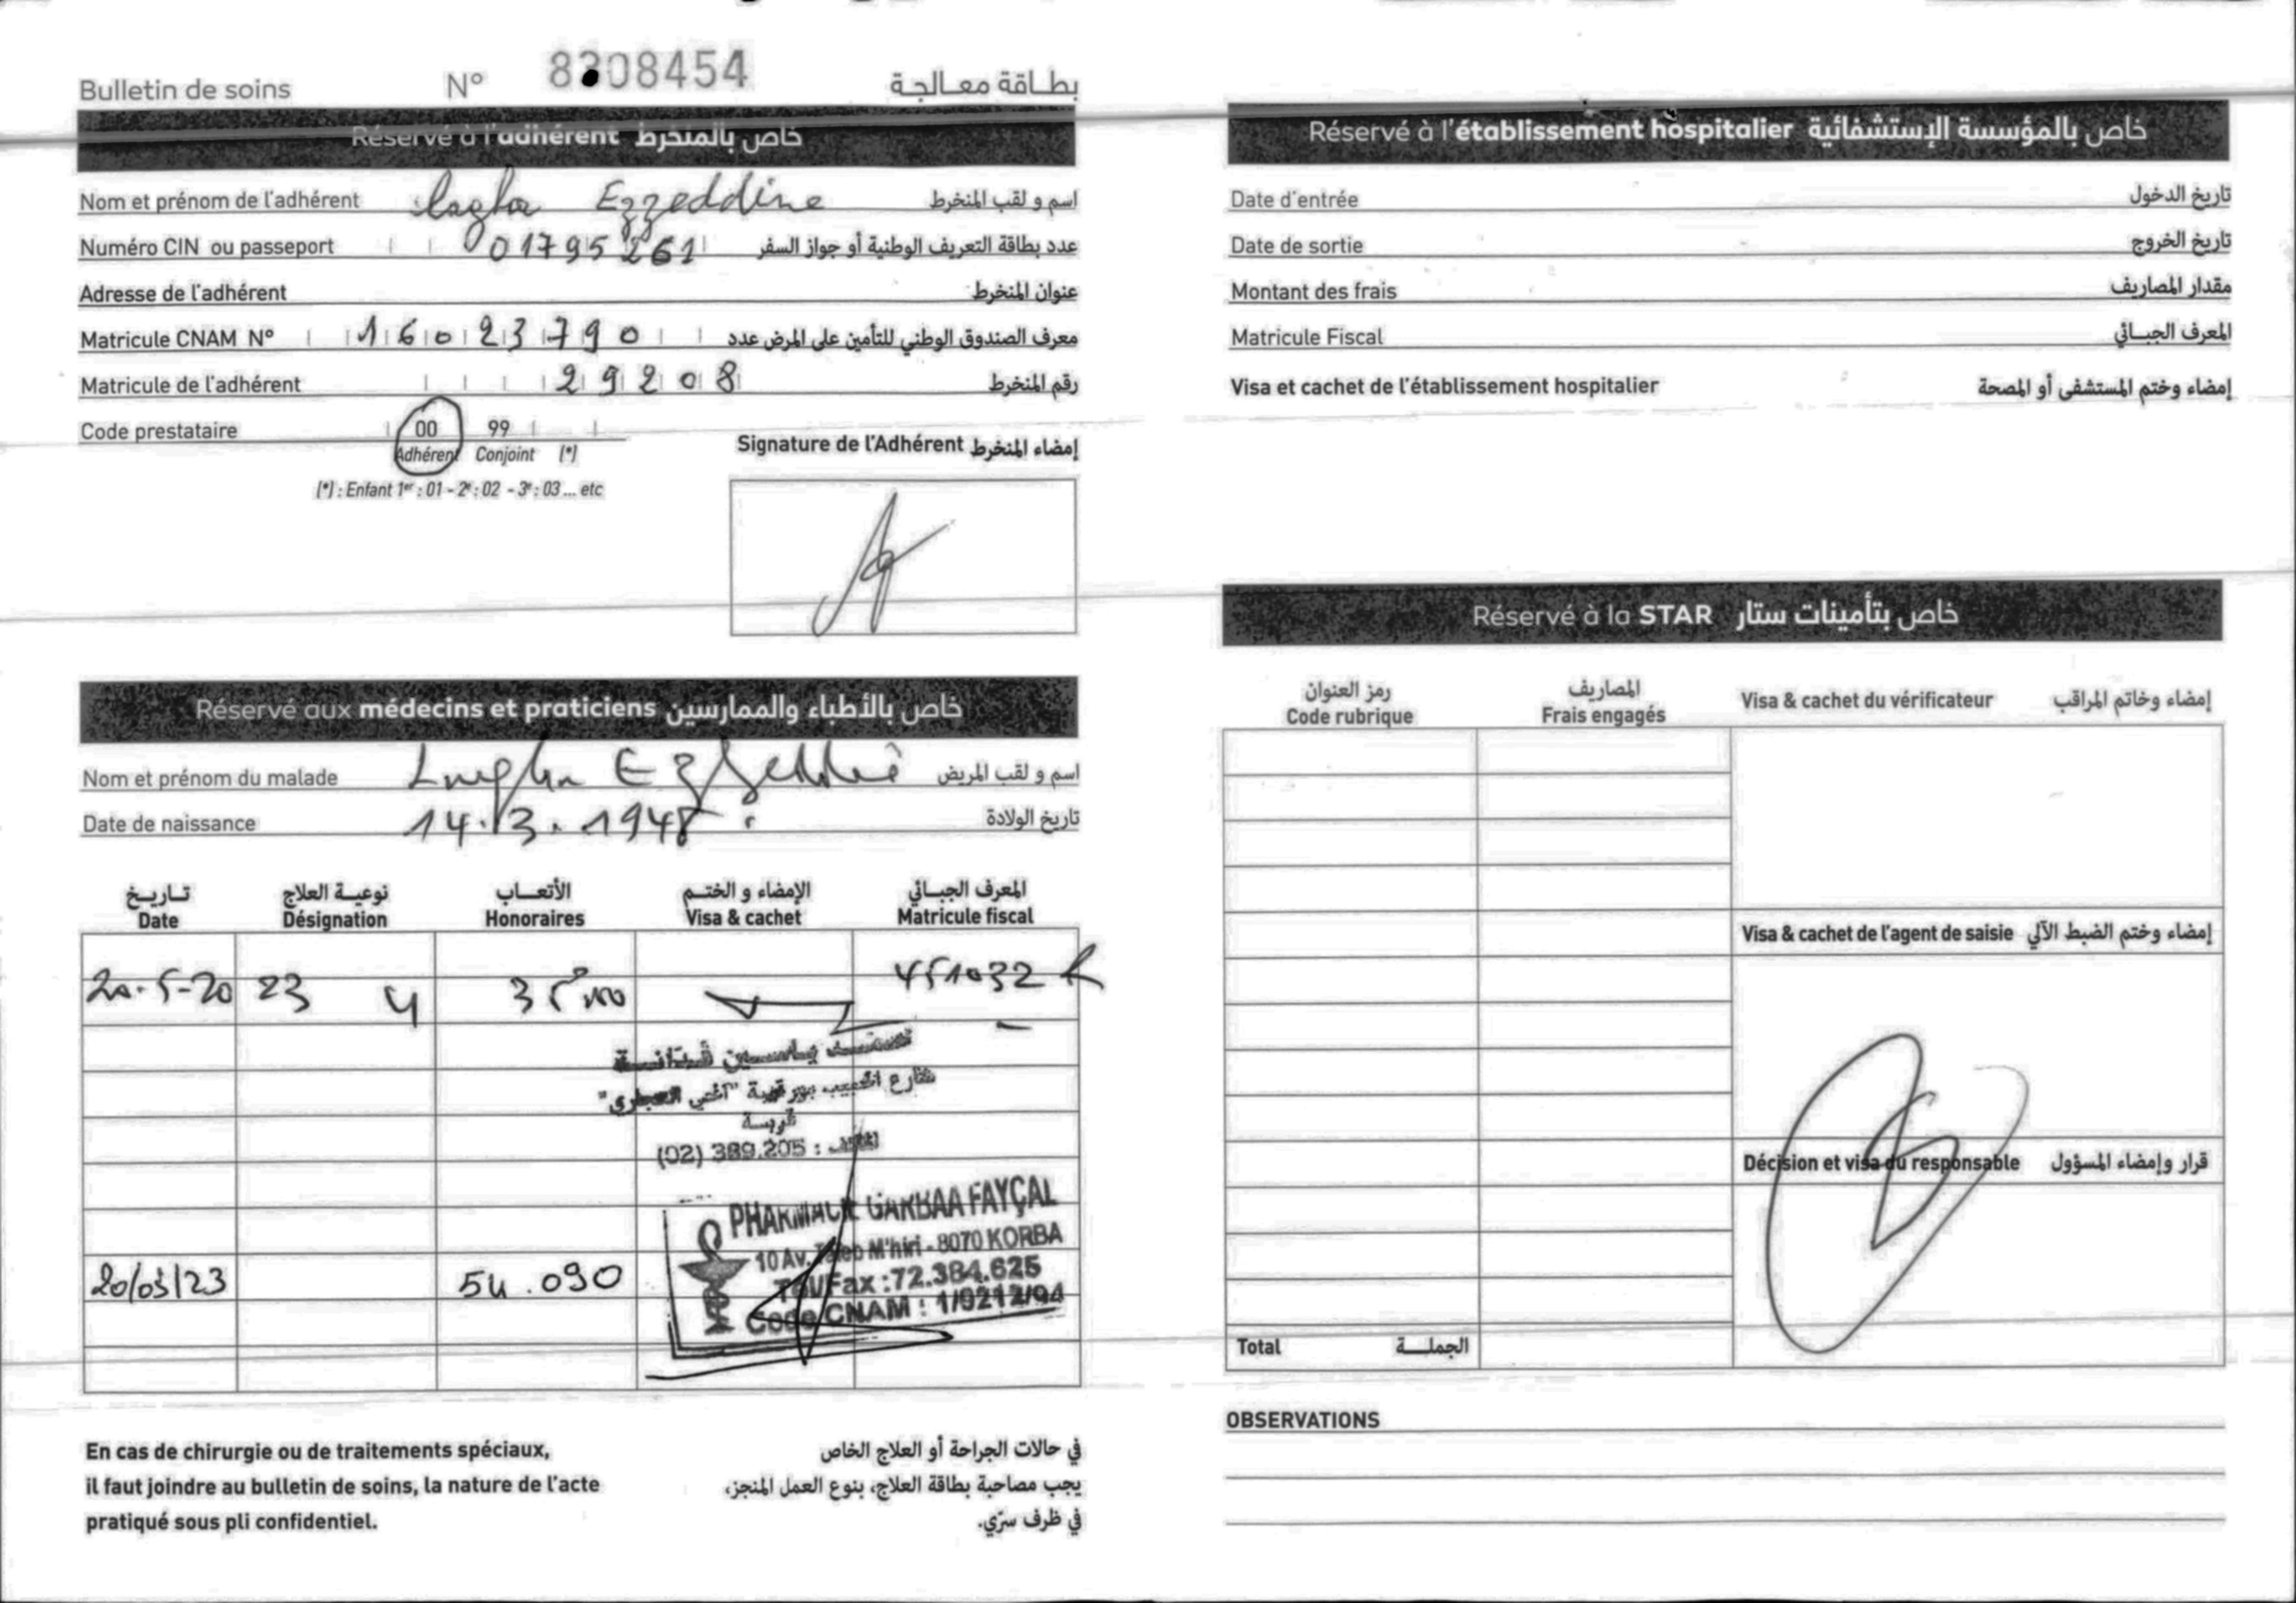 Bulletin de soins N° 8308454 بطاقة معالجة
Réservé à l'adhérent خاص بالمنخرط
Nom et prénom de l'adhérent Ezzeddine اسم و لقب المنخرط
Numéro CIN ou passeport 01795261 عدد بطاقة التعريف الوطنية أو جواز السفر
Adresse de l'adhérent عنوان المنخرط
Matricule CNAM N° 16023790 معرف الصندوق الوطني للتأمين على المرض عدد
Matricule de l'adhérent 29208 رقم المنخرط
Code prestataire 00 99
Adhérent Conjoint (*)
(*) : Enfant 1er : 01 - 2e : 02 - 3e : 03 ... etc
Signature de l'Adhérent إمضاء المنخرط
Réservé aux médecins et praticiens خاص بالأطباء والممارسين
Nom et prénom du malade اسم و لقب المريض
Date de naissance 14.3.1948 تاريخ الولادة
تاريخ نوعية العلاج الأتعاب الإمضاء و الختم المعرف الجبائي
Date Désignation Honoraires Visa & cachet Matricule fiscal
20-5-2023 451032 K
شارع الحبيب بورقيبة
(02) 389.205 : الهاتف
PHARMACIE GARBAA FAYÇAL
10 Av. Taieb M'hiri - 8070 KORBA
Tel/Fax : 72.384.625
Code CNAM : 1/0212/94
20/05/23 54.090
En cas de chirurgie ou de traitements spéciaux,
il faut joindre au bulletin de soins, la nature de l'acte
pratiqué sous pli confidentiel.
في حالات الجراحة أو العلاج الخاص
يجب مصاحبة بطاقة العلاج، بنوع العمل المنجز،
في ظرف سرّي.
Réservé à l'établissement hospitalier خاص بالمؤسسة الإستشفائية
Date d'entrée تاريخ الدخول
Date de sortie تاريخ الخروج
Montant des frais مقدار المصاريف
Matricule Fiscal المعرف الجبائي
Visa et cachet de l'établissement hospitalier إمضاء وختم المستشفى أو المصحة
Réservé à la STAR خاص بتأمينات ستار
رمز العنوان المصاريف
Code rubrique Frais engagés
Visa & cachet du vérificateur إمضاء وخاتم المراقب
Visa & cachet de l'agent de saisie إمضاء وختم الضبط الآلي
Décision et visa du responsable قرار وإمضاء المسؤول
Total الجملة
OBSERVATIONS